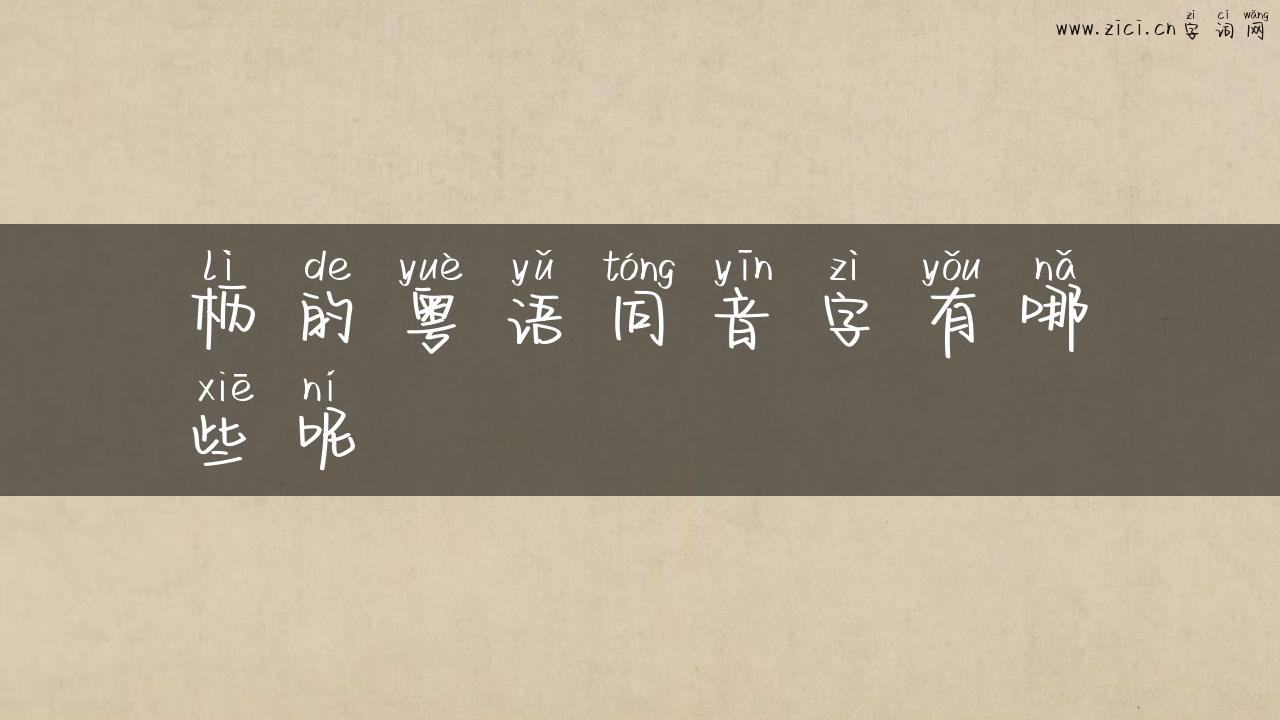 zì cí wǎng
www.zici.cn 字词网
lì de yuè yǔ tóng yīn zì yǒu nǎ
枥的粤语同音字有哪
xiē ní
些呢